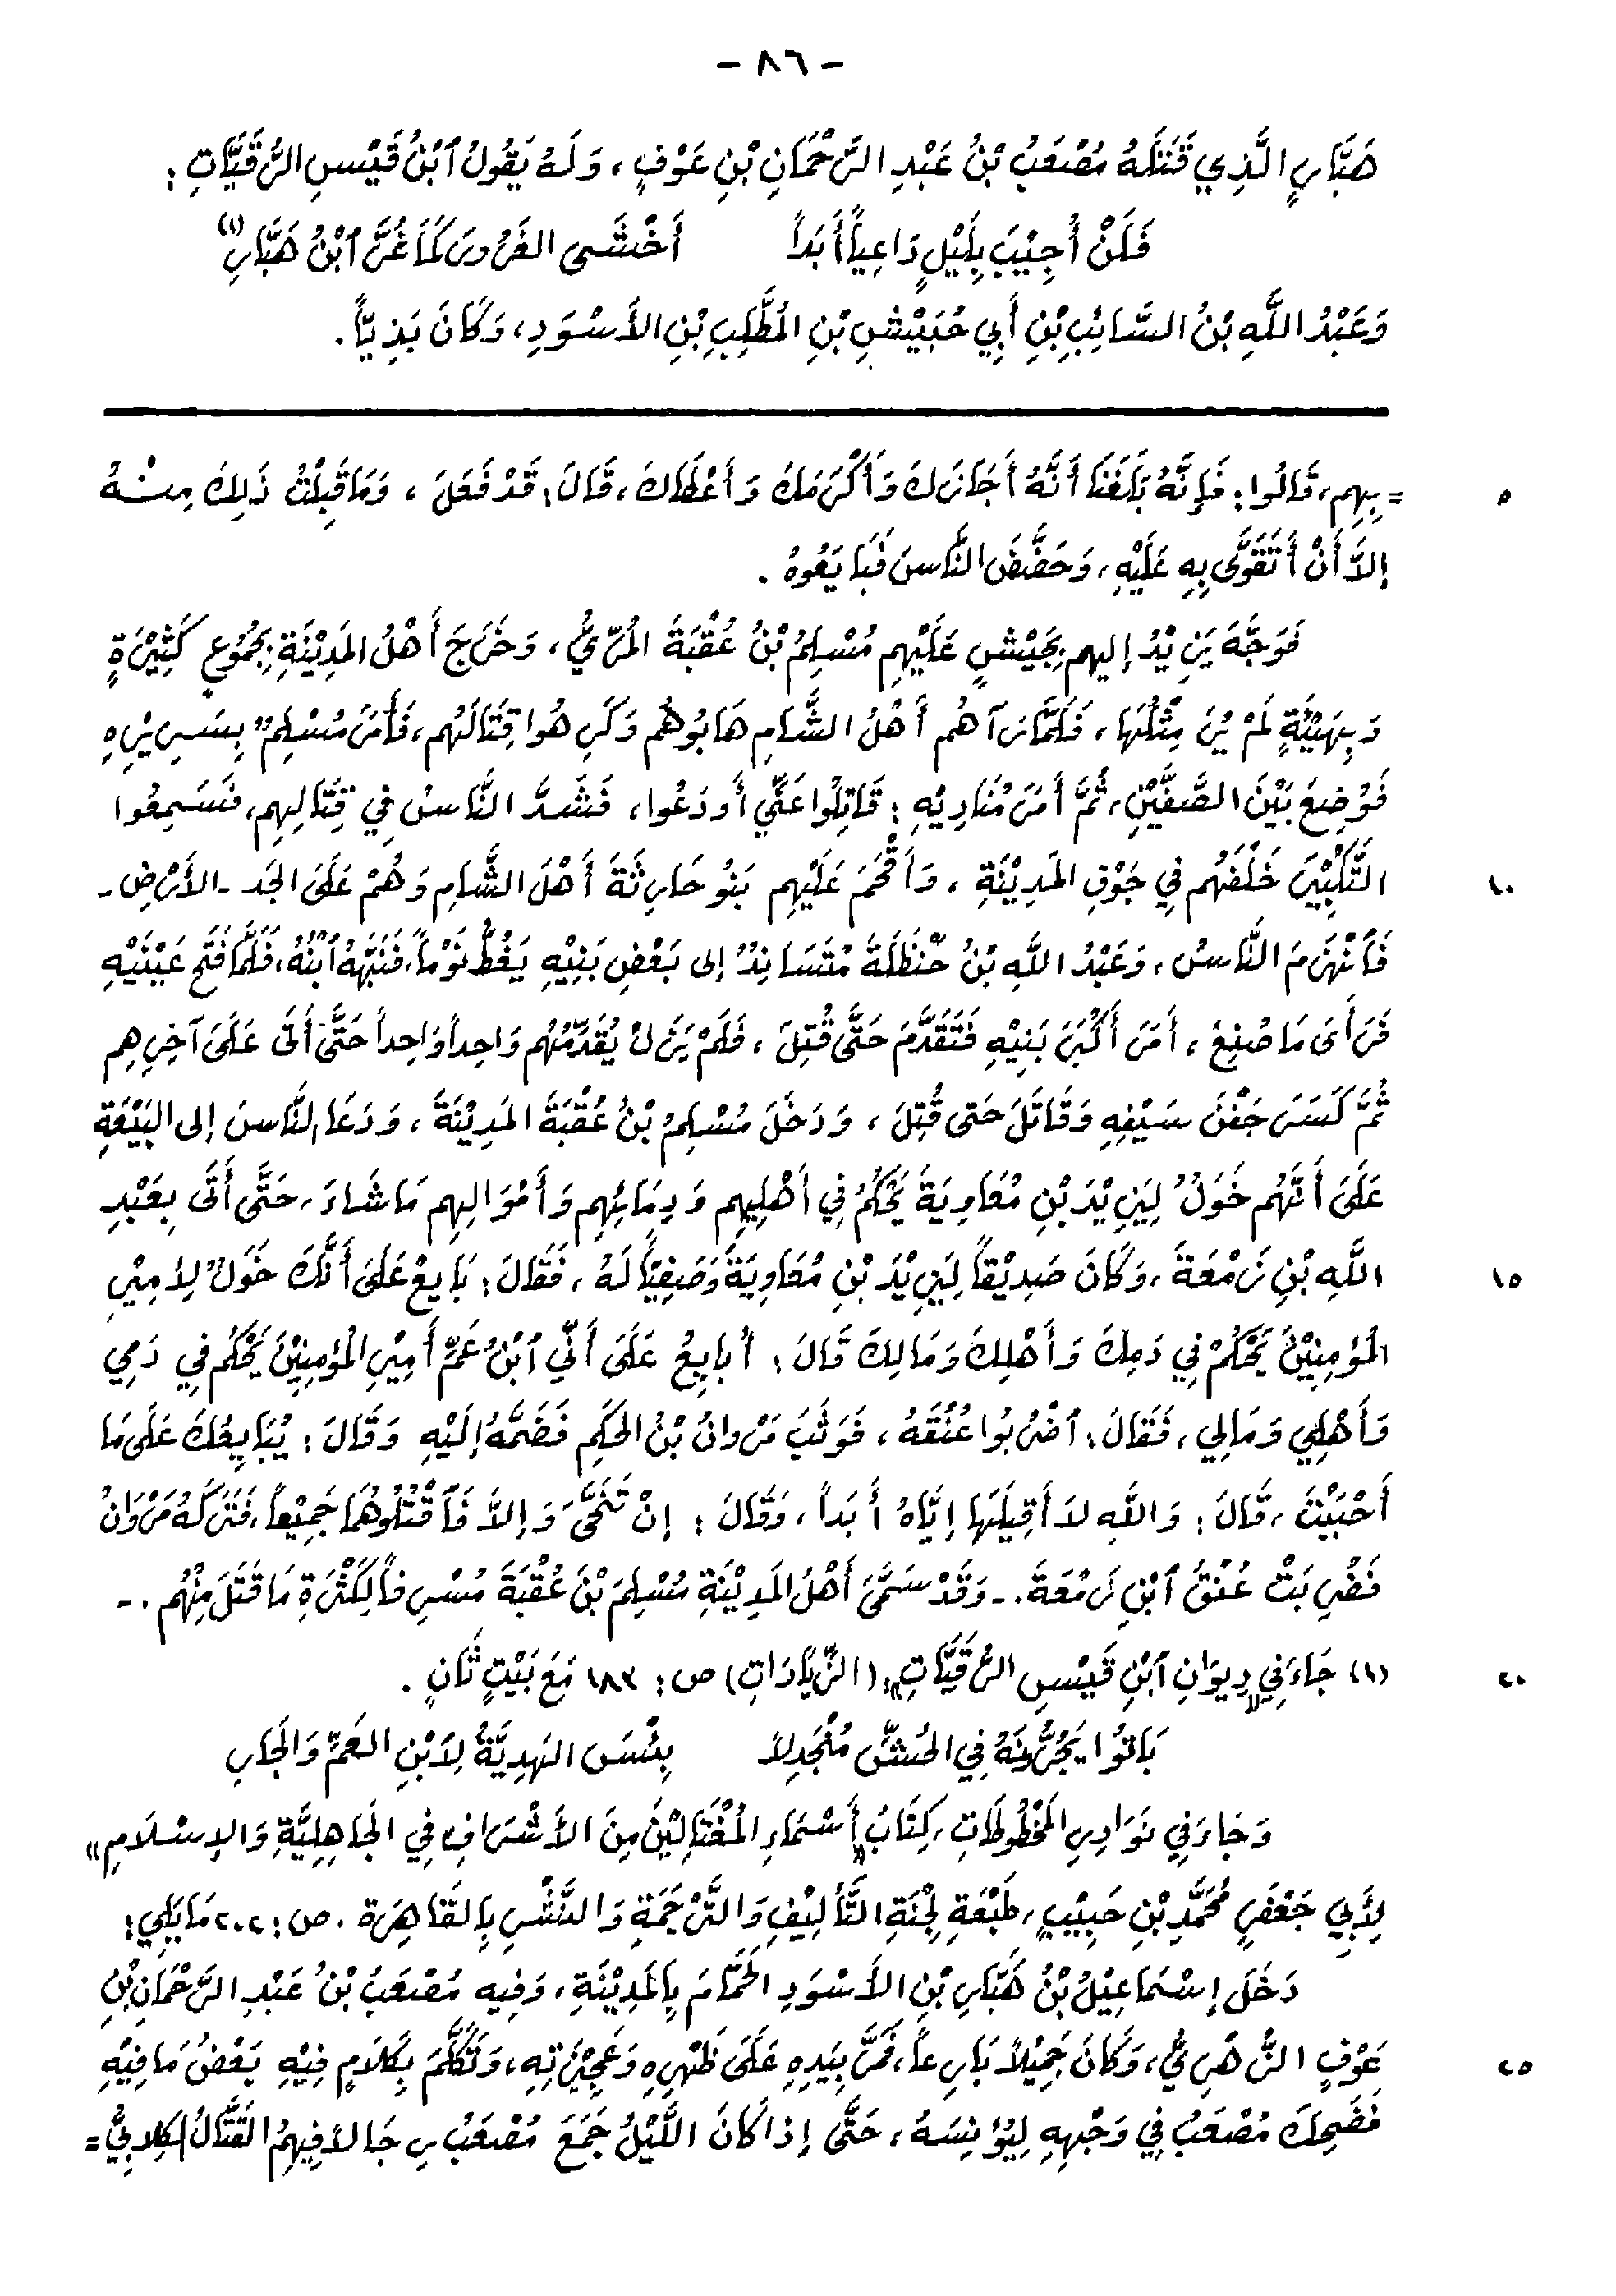 - ٨٦ -
هَبَّارٍ الَّذِي قَتَلَهُ مُصْعَبُ بْنُ عَبْدِ الرَّحْمَانِ بْنِ عَوْفٍ، وَلَهُ يَقُولُ ٱبْنُ قَيْسِ الرُّقَيَّاتِ:
فَلَنْ أُجِيْبَ بِلَيْلٍ دَاعِيَاً أَبَدَاً أَخْشَى الغَرُورَ كَمَا غُرَّ ٱبْنُ هَبَّارِ (١)
وَعَبْدُ اللَّهِ بْنُ السَّائِبِ بْنِ أَبِي حُبَيْشِ بْنِ المُطَّلِبِ بْنِ الأَسْوَدِ، وَكَانَ بَذِيّاً.
= بِهِم، قَالُوا: فَإِنَّهُ بَلَغَنَا أَنَّهُ أَجَازَكَ وَأَكْرَمَكَ وَأَعْطَاكَ، قَالَ: قَدْ فَعَلَ، وَمَا قَبِلْتُ ذَلِكَ مِنْهُ ٥
إِلاَّ أَنْ أَتَقَوَّى بِهِ عَلَيْهِ، وَحَضَّضَ النَّاسَ فَبَايَعُوهُ.
فَوَجَّهَ يَزِيْدُ إليهم بِجَيْشٍ عَلَيْهِم مُسْلِمُ بْنُ عُقْبَةَ المُرِّيُّ، وَخَرَجَ أَهْلُ المَدِيْنَةِ بِجُمُوعٍ كَثِيْرَةٍ
وَبِهَيْئَةٍ لَمْ يُرَ مِثْلُهَا، فَلَمَّا رَآهُم أَهْلُ الشَّامِ هَابُوهُم وَكَرِهُوا قِتَالَهُم، فَأَمَرَ مُسْلِمٌ بِسَرِيْرِهِ
فَوُضِعَ بَيْنَ الصَّفَّيْنِ، ثُمَّ أَمَرَ مُنَادِيْهِ: قَاتِلُوا عَنِّي أَو دَعُوا، فَشَدَّ النَّاسُ فِي قِتَالِهِم، فَسَمِعُوا
التَّكْبِيْرَ خَلْفَهُم فِي جَوْفِ المَدِيْنَةِ، وَأَقْحَمَ عَلَيْهِم بَنُو حَارِثَةَ أَهْلَ الشَّامِ وَهُمْ عَلَى الجَدِ - الأَرْضِ - ١٠
فَٱنْهَزَمَ النَّاسُ، وَعَبْدُ اللَّهِ بْنُ حَنْظَلَةَ مُتَسَانِدٌ إلى بَعْضِ بَنِيْهِ يَغُطُّ نَوْمَاً، فَنَبَّهَهُ ٱبْنُهُ، فَلَمَّا فَتَحَ عَيْنَيْهِ
فَرَأَى مَا صُنِعَ، أَمَرَ أَكْبَرَ بَنِيْهِ فَتَقَدَّمَ حَتَّى قُتِلَ، فَلَمْ يَزَلْ يُقَدِّمُهُم وَاحِداً وَاحِداً حَتَّى أَتَى عَلَى آخِرِهِم
ثُمَّ كَسَرَ جَفْنَ سَيْفِهِ وَقَاتَلَ حَتى قُتِلَ، وَدَخَلَ مُسْلِمُ بْنُ عُقْبَةَ المَدِيْنَةَ، وَدَعَا النَّاسَ إلى البَيْعَةِ
عَلَى أَنَّهُم خَوَلٌ لِيَزِيْدَ بْنِ مُعَاوِيَةَ يَحْكُمُ فِي أَهْلِيهِم وَدِمَائِهِم وَأَمْوَالِهِم مَا شَاءَ، حَتَّى أَتَى بِعَبْدِ
اللَّهِ بْنِ زَمْعَةَ، وَكَانَ صَدِيْقاً لِيَزِيْدَ بْنِ مُعَاوِيَةَ وَصَفِيّاً لَهُ، فَقَالَ: بَايِعْ عَلَى أَنَّكَ خَوَلٌ لِأَمِيْرِ ١٥
المُؤمِنِيْنَ يَحْكُمُ فِي دَمِكَ وَأَهْلِكَ وَمَالِكَ قَالَ: أُبَايِعُ عَلَى أَنِّي ٱبْنُ عَمِّ أَمِيْرِ المُؤمِنِيْنَ يَحْكُمُ فِي دَمِي
وَأَهْلِي وَمَالِي، فَقَالَ: ٱضْرِبُوا عُنُقَهُ، فَوَثَبَ مَرْوانُ بْنُ الحَكَمِ فَضَمَّهُ إِلَيْهِ وَقَالَ: يُبَايِعُكَ عَلَى مَا
أَحْبَبْتَ، قَالَ: وَاللَّهِ لاَ أَقِيلَهَا إِيَّاهُ أَبَداً، وَقَالَ: إِنْ تَنَحَّى وَإِلاَّ فَٱقْتُلُوهُمَا جَمِيْعاً، فَتَرَكَهُ مَرْوَانُ
فَضُرِبَتْ عُنْقُ ٱبْنِ زَمْعَةَ. - وَقَدْ سَمَّى أَهْلُ المَدِيْنَةِ مُسْلِمَ بْنَ عُقْبَةَ مُسْرِفاً لِكَثْرَةِ مَا قَتَلَ مِنْهُم. -
(١) جَاءَ فِي "دِيوَانِ ٱبْنِ قَيْسِ الرُّقَيَّاتِ" (الزِّيَادَاتِ) ص: ١٨٣ مَعَ بَيْتٍ ثَانٍ. ٢٠
بَاتُوا يَجُرُّونَهُ فِي الحُشِّ مُنْجَدِلاً بِئْسَ الهَدِيَّةُ لِٱبْنِ العَمِّ وَالجَارِ
وَجَاءَ فِي نَوَادِرِ المَخْطُوطَاتِ، كِتَابُ "أَسْمَاءِ المُغْتَالِيْنَ مِنَ الأَشْرَافِ فِي الجَاهِلِيَّةِ وَالإِسْلَامِ"
لِأَبِي جَعْفَرٍ مُحَمَّدِ بْنِ حَبِيْبٍ، طَبْعَةِ لَجْنَةِ التَّأْلِيْفِ وَالتَّرْجَمَةِ وَالنَّشْرِ بِالقَاهِرَة. ص: ٢٠٢ مَا يَلِي:
دَخَلَ إِسْمَاعِيْلُ بْنُ هَبَّارِ بْنِ الأَسْوَدِ الحَمَّامَ بِالمَدِيْنَةِ، وَفِيهِ مُصْعَبُ بْنُ عَبْدِ الرَّحْمَانِ بْنِ
عَوْفٍ الزُّهْرِيُّ، وَكَانَ جَمِيْلاً بَارِعاً، فَمَرَّ بِيَدِهِ عَلَى ظَهْرِهِ وَعَجِيْزَتِهِ، وَتَكَلَّمَ بِكَلَامٍ فِيْهِ بَعْضُ مَا فِيْهِ ٢٥
فَضَحِكَ مُصْعَبُ فِي وَجْهِهِ لِيُؤنِسَهُ، حَتَّى إذا كَانَ اللَّيْلُ جَمَعَ مُصْعَبُ رِجَالاً فِيْهِمُ القَتَّالُ الكِلابِيُّ =